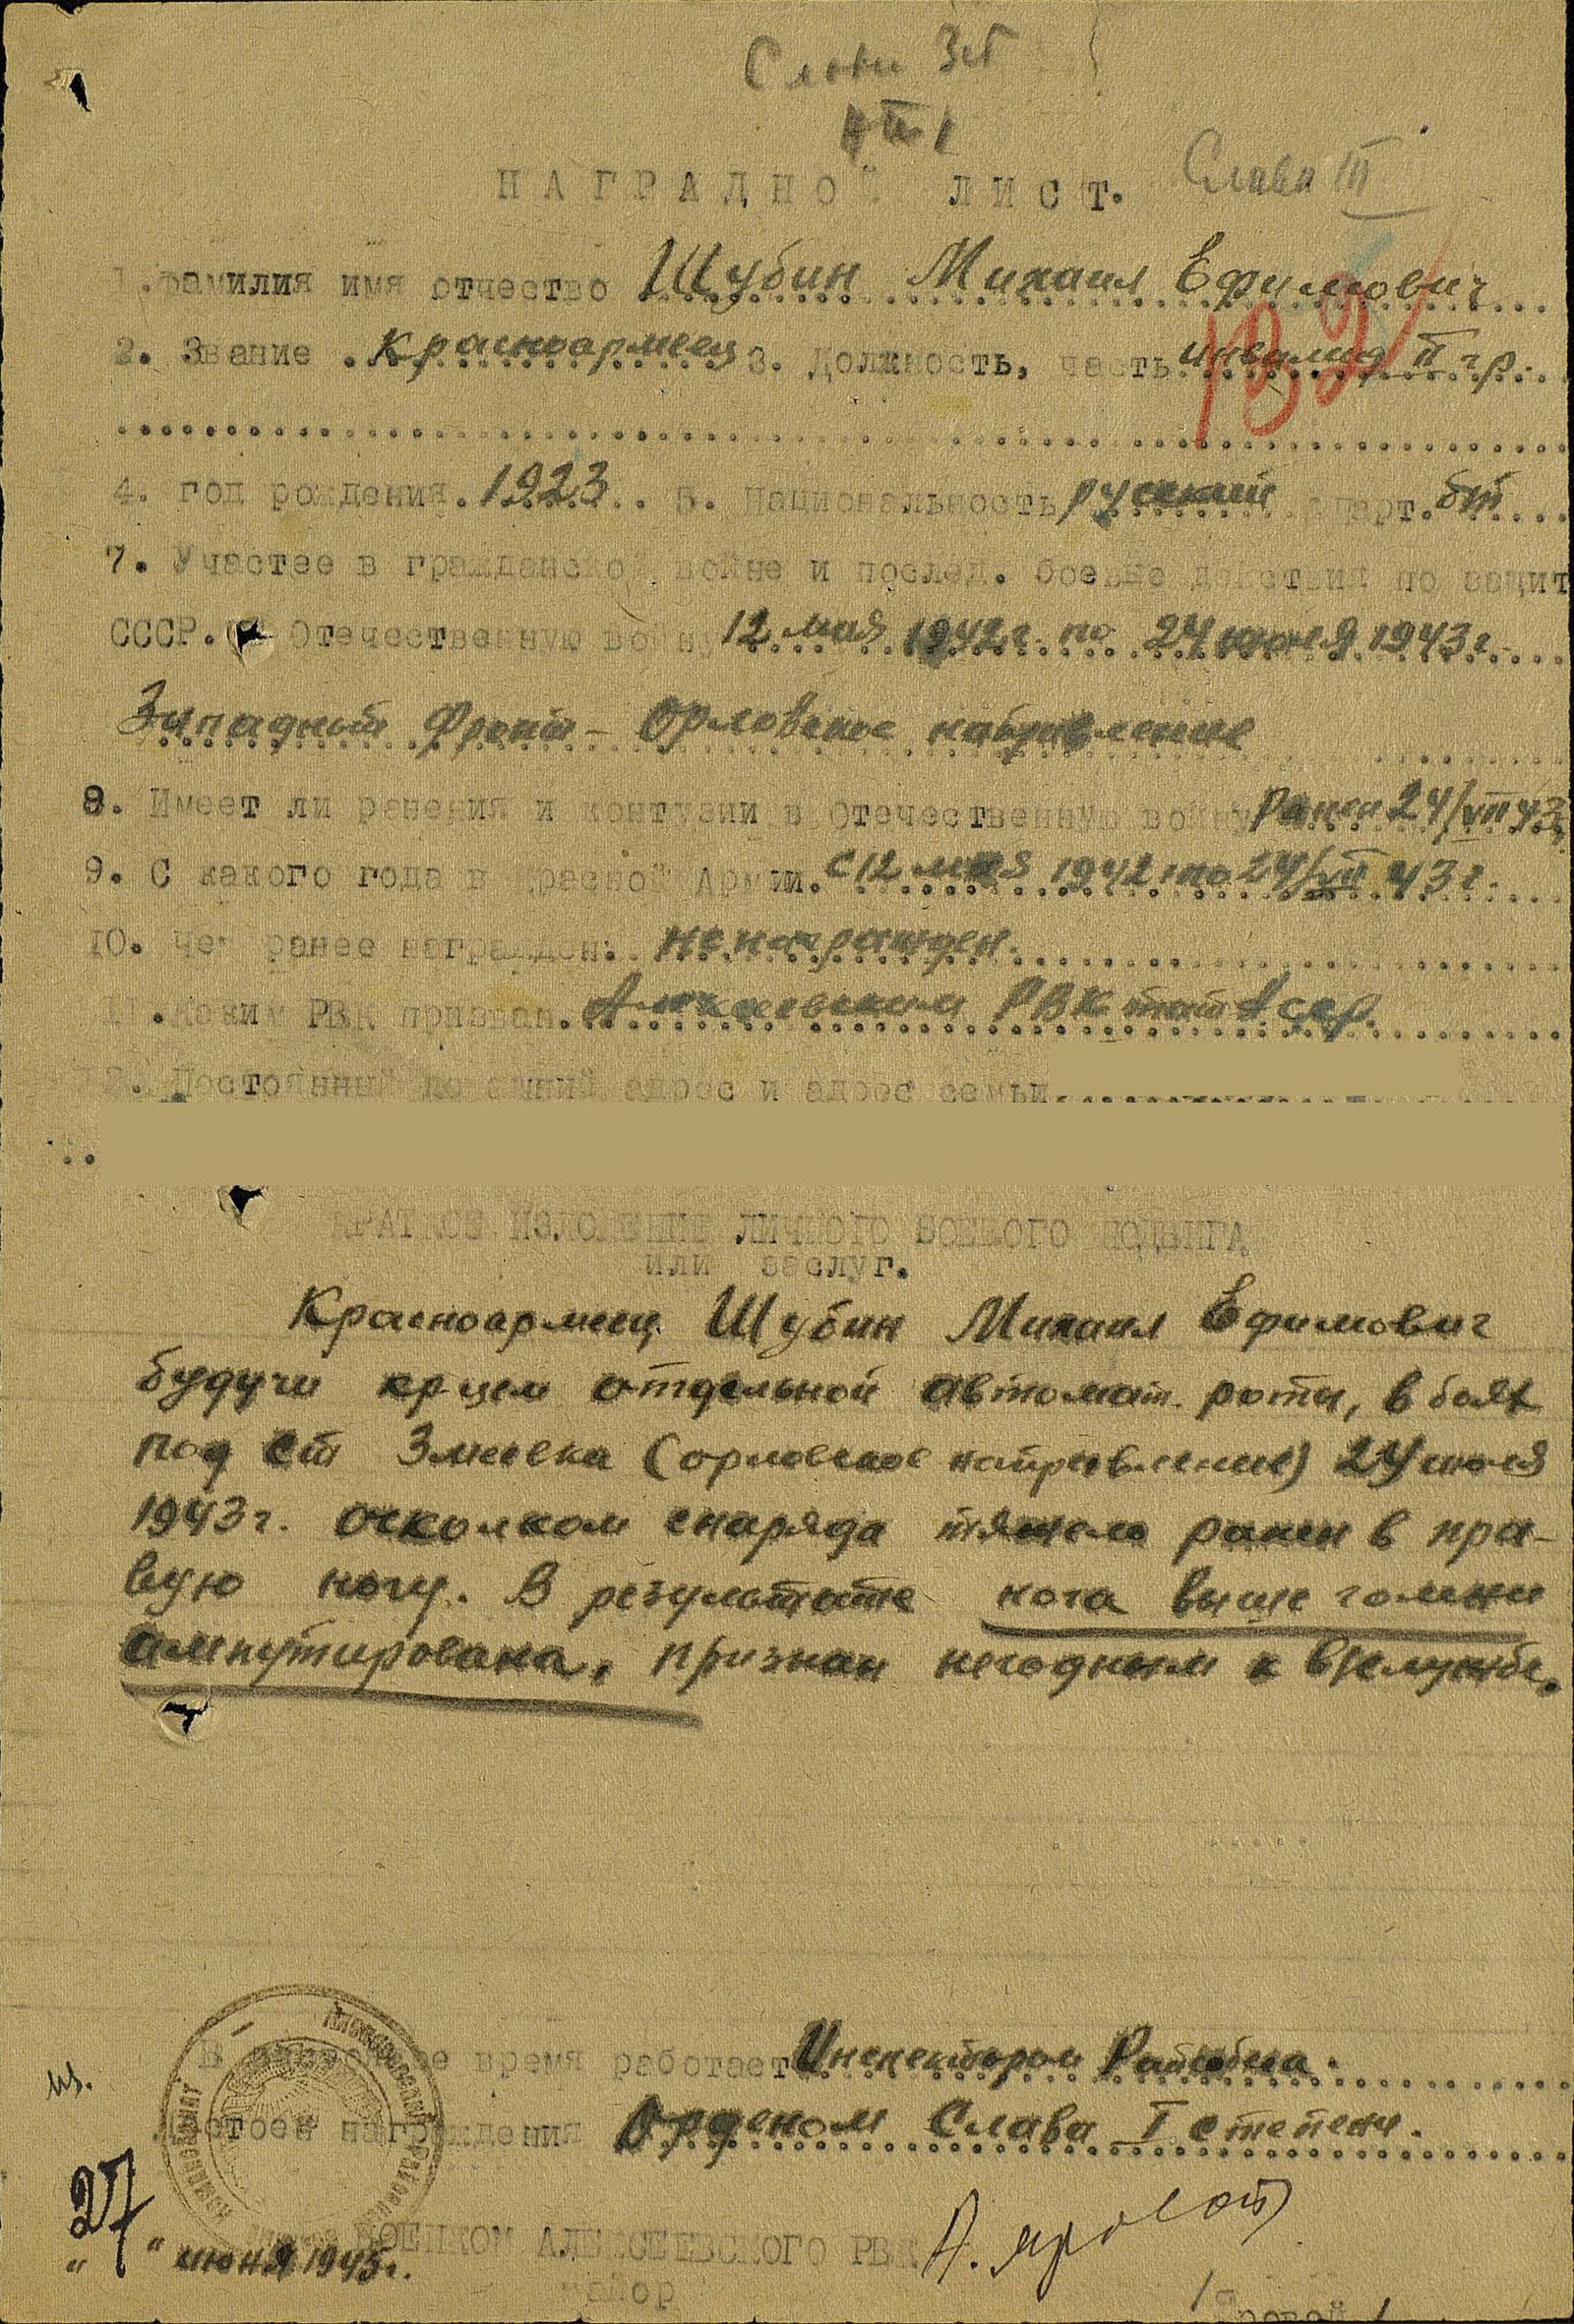 Слава 3 ст
НАГРАДНОЙ ЛИСТ. Слава III
1. Фамилия имя отчество Шубин Михаил Ефимович
2. Звание красноармеец 3. Должность, часть инвалид II гр.
132
4. год рождения 1923 5. Национальность русский парт. бп
7. Участее в гражданской войне и послед. боевые действия по защит
СССР. Отечественную войну 12 мая 1942 г. по 24 июля 1943 г.
Западный фронт - Орловское направление
8. Имеет ли ранения и контузии в Отечественную войну ранен 24/VII 43
9. С какого года в Красной Армии. с 12 мая 1942 г по 24/VII 43 г.
10. чем ранее награжден: не награжден.
11. Каким РВК призван. Алексеевским РВК тат Асср.
12. Постоянный домашний адрес и адрес семьи
КРАТКОЕ ИЗЛОЖЕНИЕ ЛИЧНОГО БОЕВОГО ПОДВИГА
или заслуг.
Красноармеец Шубин Михаил Ефимович
будучи кр-цем отдельной автомат. роты, в боях
под ст Змеевка (орловское направление) 24 июля
1943 г. осколком снаряда тяжело ранен в пра-
вую ногу. В результате нога выше голени
ампутирована, признан негодным к в/службе.
В настоящее время работает Инспектором
Достоен награждения Орденом Слава I степени.
27
" " июня 1945 г.
ВОЕНКОМ АЛЕКСЕЕВСКОГО РВК
майор